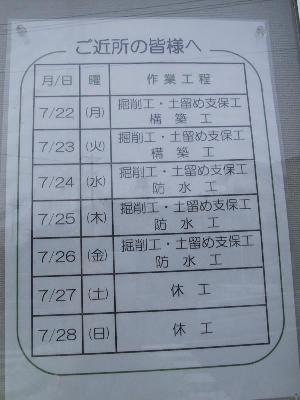 ご近所の皆様へ
月/日 曜 作業工程
7/22 (月) 掘削工・土留め支保工
構築工
7/23 (火) 掘削工・土留め支保工
構築工
7/24 (水) 掘削工・土留め支保工
防水工
7/25 (木) 掘削工・土留め支保工
防水工
7/26 (金) 掘削工・土留め支保工
防水工
7/27 (土) 休工
7/28 (日) 休工